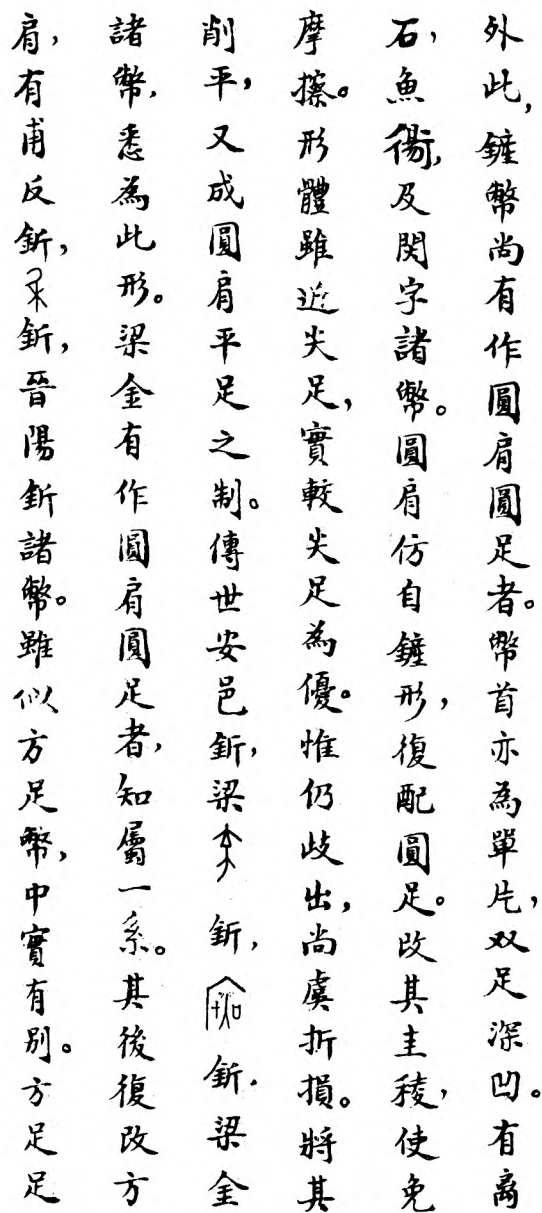 外此，鏟幣尚有作圓肩圓足者。幣首亦為單片，双足深凹。有离
石，魚𨜓，及関字諸幣。圓肩仿自鏟形，復配圓足。改其圭稜，使免
摩擦。形體雖近尖足，實較尖足為優。惟仍歧出，尚虞折損。將其
削平，又成圓肩平足之制。傳世安邑釿，梁釿，釿．梁金
諸幣，悉為此形。梁金有作圓肩圓足者，知屬一系。其後復改方
肩，有甫反釿，釿，晉陽釿諸幣。雖似方足幣，中實有別。方足足